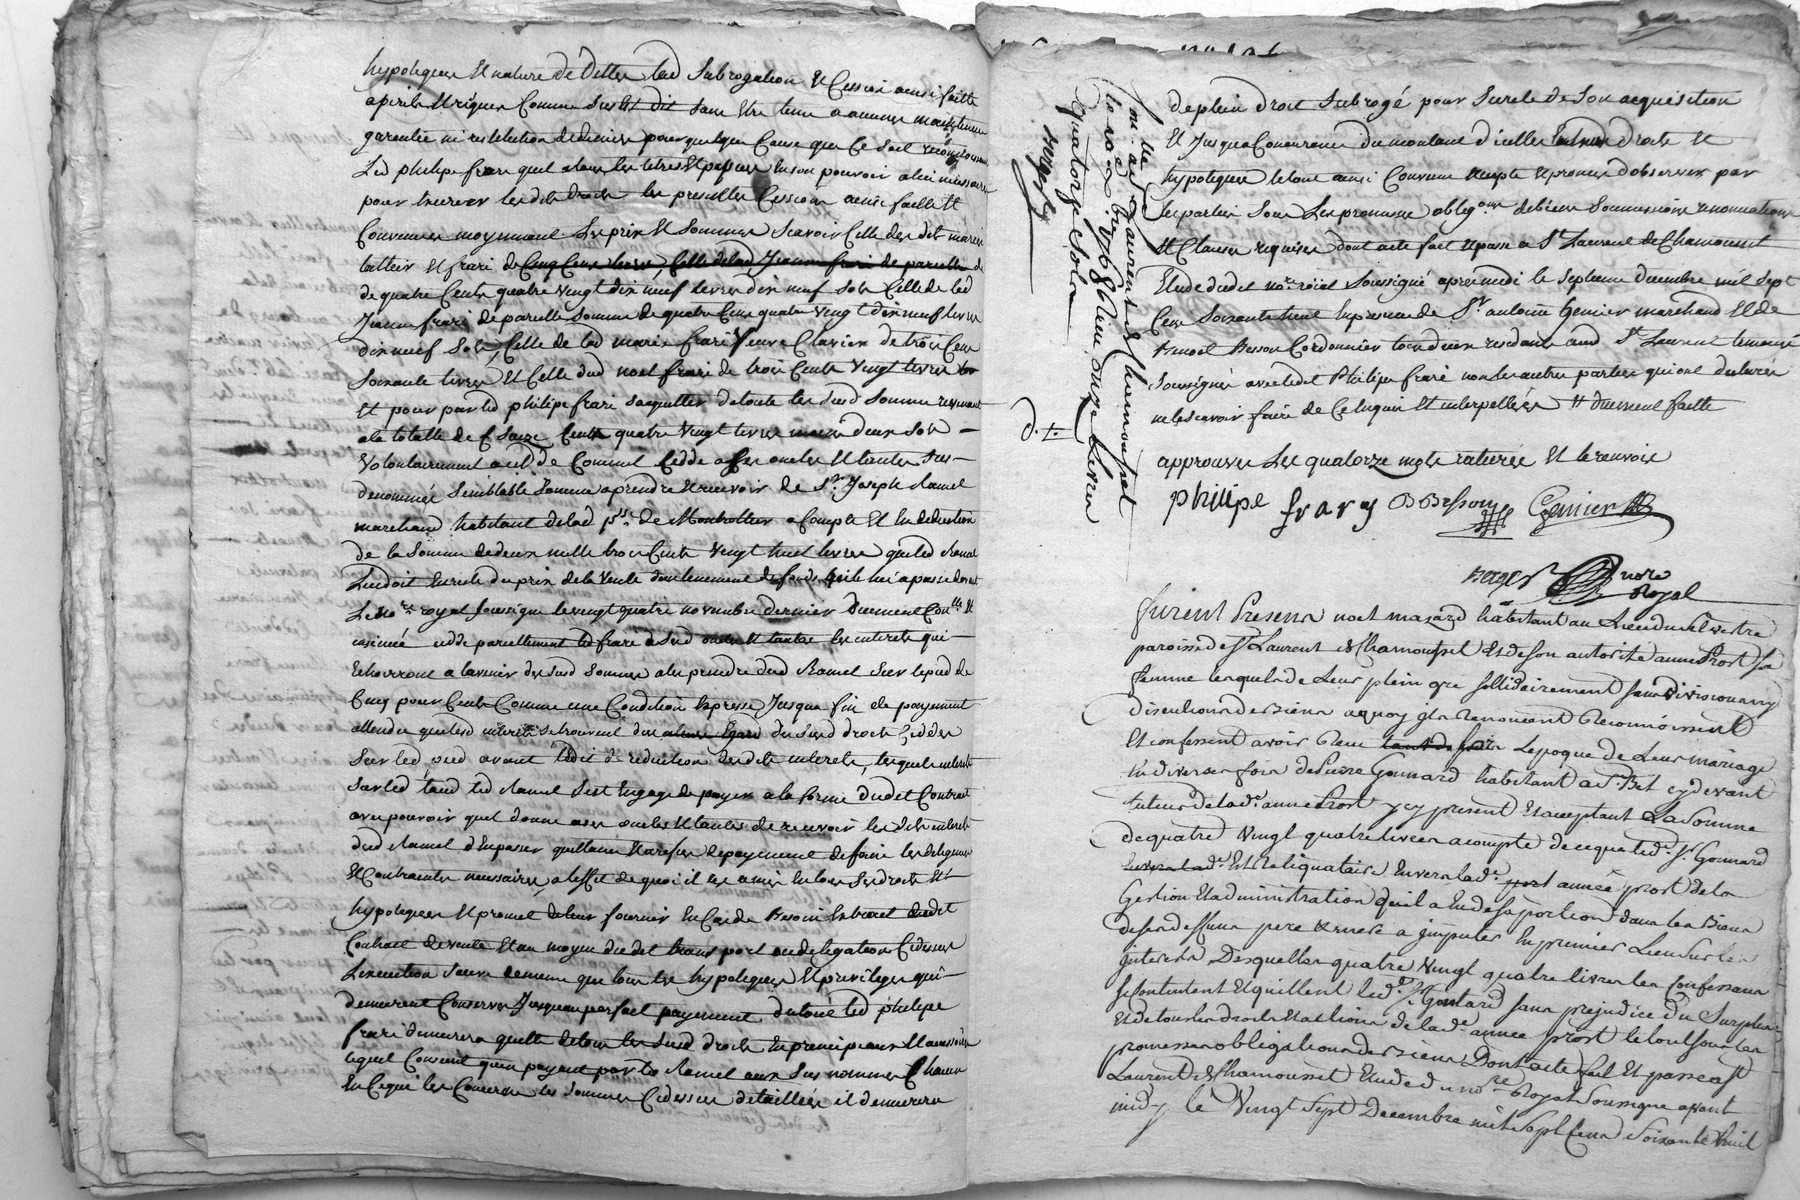 hypoteques et nature de dettes lad subrogation et Cession ainsi faitte
a peril et risques Comme sus est dit sans etre tenu a aucune maintenue
garentie ni restitution de deniers pour quelque Cause que Ce soit
Led philipe frari quil a tous les titres et papiers en son pouvoir
pour exercer lesdits droits les presentes Cessions ainsi faittes et
Convenues moyennant les prix et sommes scavoir Celle des dit mariés
et frari de Cinq Cens livres, Celle de lad Jeanne frari de pareille de
de quatre Cents quatre vingt dix neuf livres dix neuf sols Celle de lad
Jeanne frari de pareille somme de quatre Cens quatre vingt dix neuf livres
dix neuf sols, Celle de lad marie frari Veuve Clavier de trois Cens
soixante livres et Celle dud noel frari de trois Cents vingt livres
et pour par led philipe frari s'acquitter de toute les susd somme revenant
a la totalle de seize Cents quatre vingt livres moins deux sols
Volontairement a cédé Comme il Cedde a ses oncles et tantes sus
denommés semblable somme a prendre et recevoir de Sr Joseph Ramel
marchand habitant de lad psse de Montrottier a Compte et en deduction
de la somme de deux mille trois Cents vingt huit livres que led Ramel
Lui doit en reste du prix de la vente d'un tenement de fonds qu'il lui a passé devant
Le nore royal soussigné le vingt quatre novembre dernier duement Conlle et
insinué cedde pareillement led frari a sesd oncles et tantes les interets qui
Echorront a l'avenir desd sommes a les prendre dud Ramel sur le pied de
Cinq pour Cent Comme une Condition expresse Jusqua fin de payement
attendu que lesd interets se trouvent dus a leurs Egard dusd droits Ceddés
sur led pied avant l'edit de reduction desdits interets, lesquels interets
sur led taud led Ramel s'est engagé de payer a la forme dudit Contrat
avec pouvoir quil donne a ses oncles et tantes de recevoir lesdits interets
dud Ramel d'en passer quittance et a refus de payement de faire les diligences
et Contraintes necessaires, a l'effet de quoi il les a mis en tous ses droits et
hypoteques et promet de leur fournir en Cas de Besoin Extrait dudit
Contrat de vente et au moyen dudit transport ou delegation Cidessus
L'execution sauve Comme que tous les hypoteques et privileges qui
demeurent Conservés Jusqu'au parfait payement du tout led philipe
frari demeurera quitte de tous les susd droits en principaux et accessoires
lequel Consent qu'en payant par led Ramel aux sus nommés Chacun
en Ce qui les Concerne les sommes Cidessus detaillées il demeurera
de plein droit subrogé pour sureté de son acquisition
et Jusqua Concurrence du montant d'icelles en leurs droits et
hypoteques le tout ainsi Convenu accepté et promis d'observer par
les parties sous Les promesses obligons de biens soumissions renonciations
et Clauses requises, dont acte fait et passé a St Laurent de Chamousset
Etude dudit nore roial soussigné apres midi le septieme decembre mil sept
Cens soixante huit En presence de Sr antoine Genier marchand et de
Besson Cordonnier tous deux residants aud St Laurent temoins
soussignés avec ledit Philipe frari non les autres parties qui ont declarés
ne le scavoir faire de Ce enquis et interpellées et duement faitte
approuvés Les quatorze mots raturés et le renvoie
philipe frary B Besson Genier
nore
Royal
d. t.
Con. a St Laurent de Chamousset
le 1768 Reçu onze livres
quatorze sols
furent Presens noel mazard habitant au Lieu du
paroisse de St Laurent de Chamousset et de son autorité anne Prost sa
femme lesquels de Leur plein gré sollidairement sans division ny
discution de biens a quoy ils Renoncent Reconnoissent
Et confessent avoir Reçu Lepoque de Leur mariage
En diverses fois de Pierre Gonnard habitant au Bet cy devant
tuteur de lade anne Prost y cy present Et acceptant La Somme
de quatre vingt quatre livres a compte de ce que led. Sr. Gonnard
Est Reliquataire Envers lade. anne prost de la
Gestion Et administration qu'il a Eu de sa portion dans les Biens
de ses deffunts pere & mere a jmputer En premier Lieu sur les
jnterets Desquelles quatre vingt quatre livres les Confessants
se contentent Et quittent led. Sr Gonnard sans prejudice du Surplus
Et de tous les droits Et actions de lade anne prost le tout sous les
promesses obligations de biens Dont acte fait Et passé a St
Laurent de Chamousset Etude du nore Royal Soussigné avant
midy le Vingt Sept Decembre mil Sept Cens Soixante huit